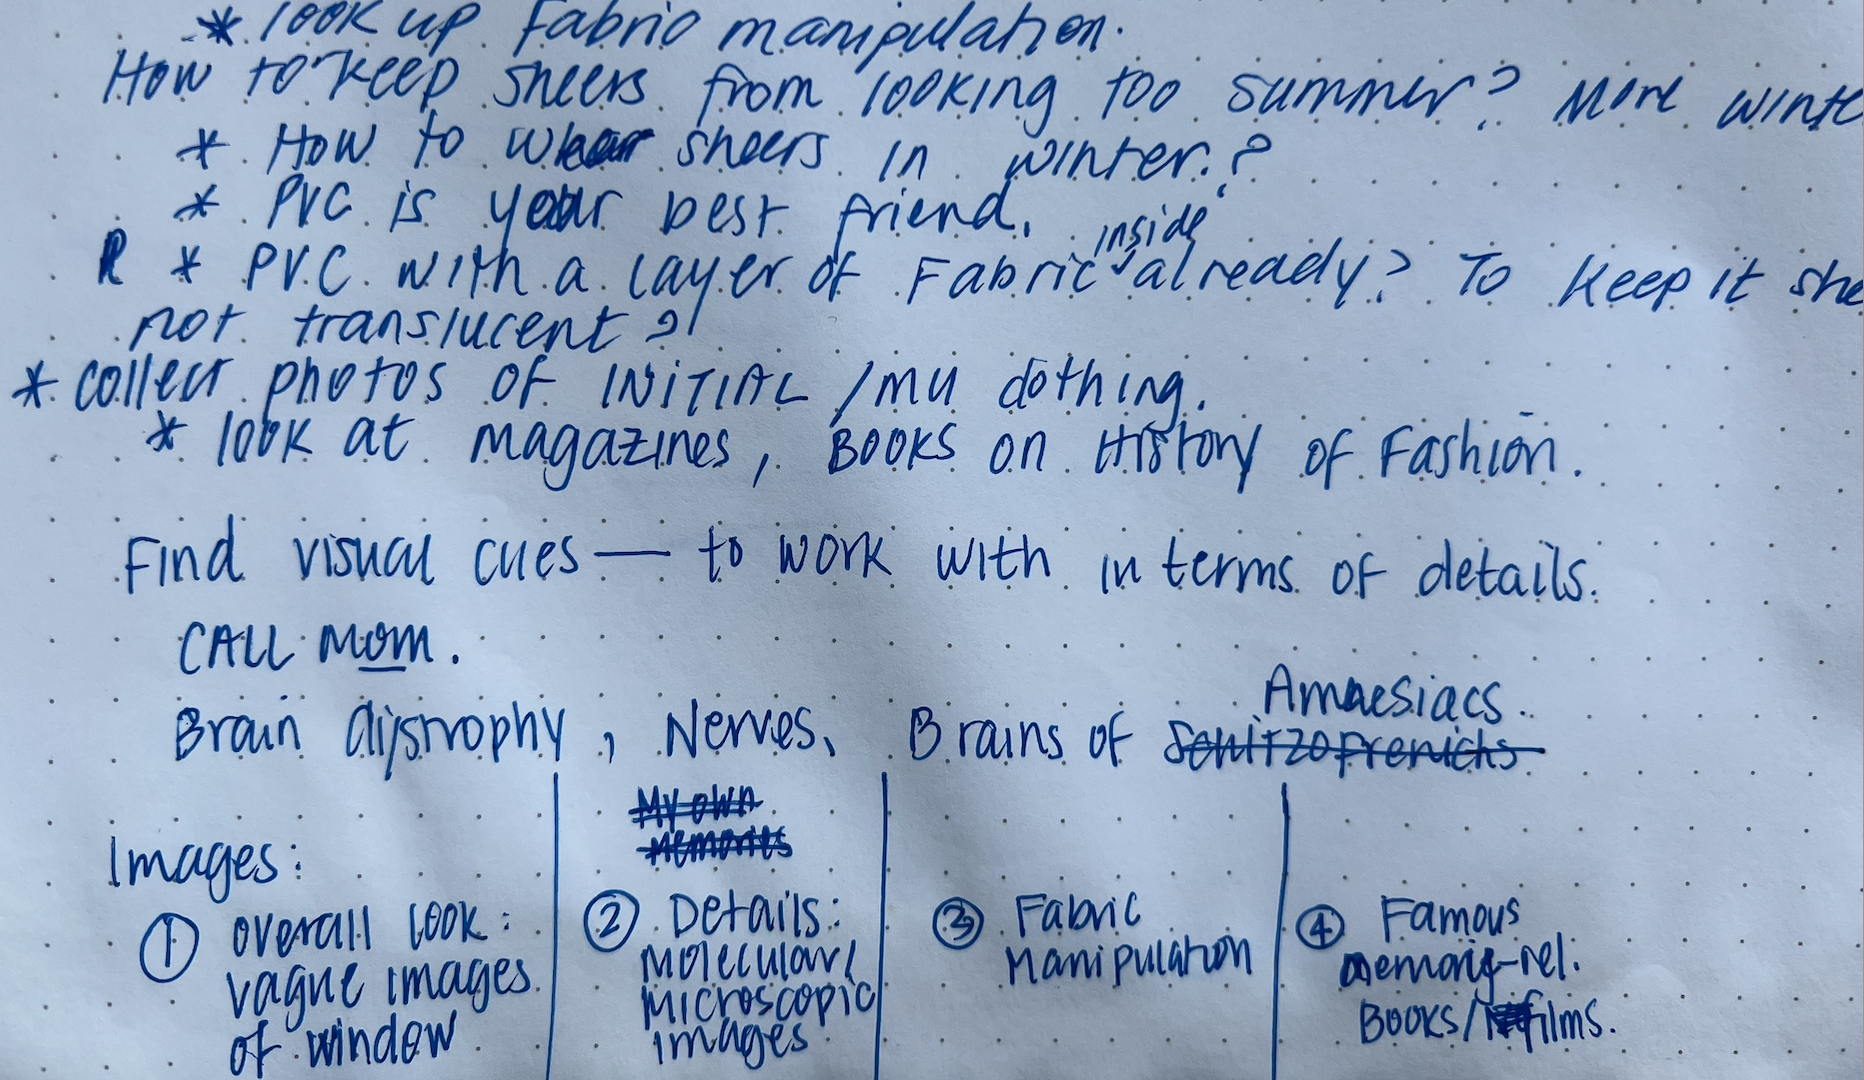 * look up Fabric manipulation.
How to keep sheers from looking too summer? More winte
* How to wear sheers in winter?
* PVC is your best friend.
inside
* PVC with a layer of Fabric already? To keep it she
not translucent?
* collect photos of INITIAL /MU clothing.
* look at magazines, BOOKS on History of Fashion.
Find visual cues — to work with in terms of details.
CALL MOM.
Amnesiacs.
Brain dystrophy, Nerves, Brains of Schitzofrenichs
My own
Memories
Images:
① overall look:
vague images
of window
② Details:
Molecular/
Microscopic
images
③ Fabric
Manipulation
④ Famous
memory-rel.
BOOKS/films.